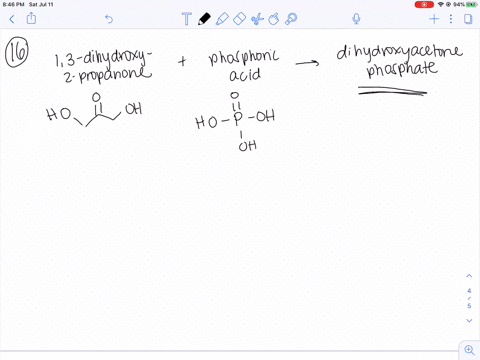 8:46 PM Sat Jul 11
94%
16
1,3-dihydroxy-
2-propanone
+
phosphoric
acid
→
dihydroxyacetone
phosphate
O
HO
OH
O
HO-P-OH
OH
4
/
5